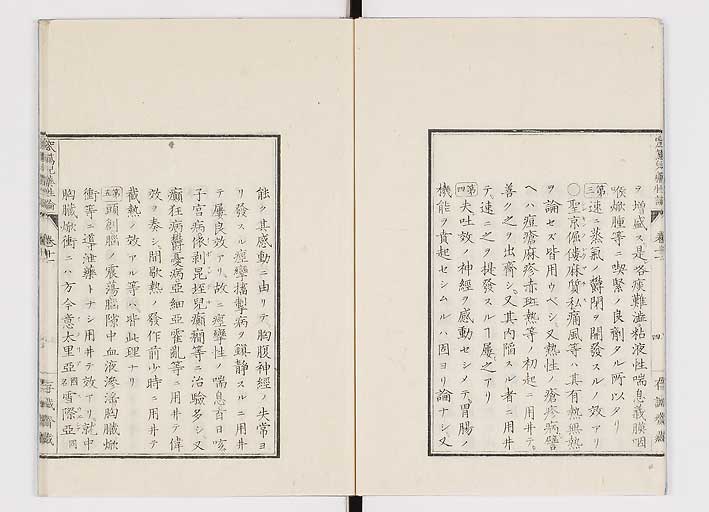 ヲ増盛ス是咯痰難澁粘液性喘息義膜咽
喉焮腫等ニ喫緊ノ良劑タル所以タリ
第三速ニ蒸氣ノ欝閉ヲ開發スルノ效アリ
〇聖京倔僂麻質私痛風等ハ其有熱無熱
ヲ論セズ皆用ウベシ又熱性ノ瘡疹病譬
ヘハ痘瘡麻疹赤斑熱等ノ初起ニ用井テ
善ク之ヲ出齊シ又其内陷スル者ニ用井
テ速ニ之ヲ挽發スルヿ屢之アリ
第四夫吐效ノ神經ヲ感動セシノテ胃腸ノ
機能ヲ賁起セシムルハ固ヨリ論ナシ又
能ク其感動ニ由リテ胸腹神經ノ失常ヨ
リ發スル痙攣搐掣病ヲ鎮靜スルニ用井
テ屢良效アリ故ニ痙攣性ノ喘息百日咳
子宮病依剥昆垤兒癲癇等ニ治驗多シ又
癲狂病欝憂病亞細亞霍亂等ニ用井テ偉
效ヲ奏シ間歇熱ノ發作前少時ニ用井テ
截熱ノ效アル等ハ皆此理ナリ
第五頭創腦ノ震蕩腦隙中血液滲漏胸臓焮
衝等ニ導泄藥トナシ用井テ效アリ就中
胸臓焮衝ニハ方今意太里亞國雪際亞國